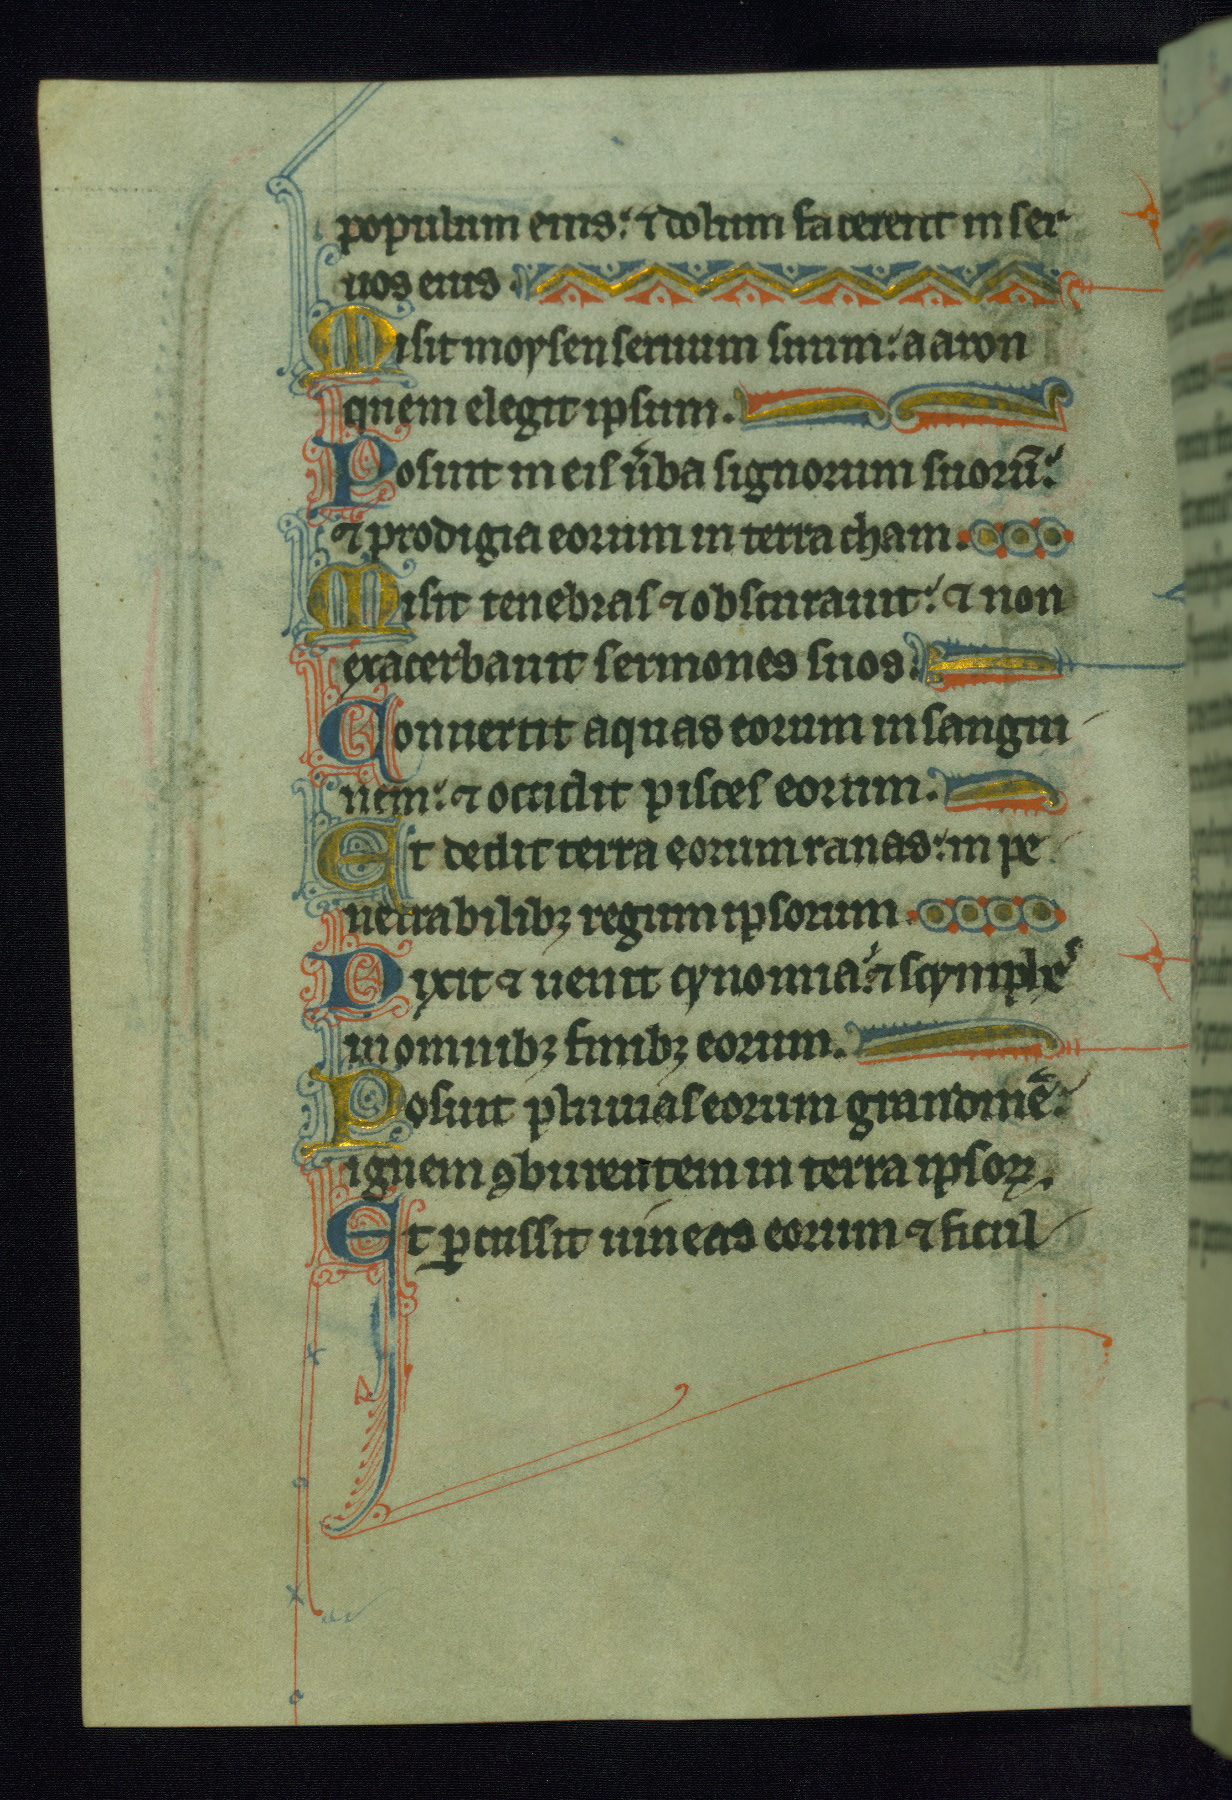 populum eius: ⁊ dolum facerent in ser
uos eius.
Misit moysen seruum suum: aaron
quem elegit ipsum.
Posuit in eis ūba signorum suorū:
⁊ prodigia eorum in terra cham.
Misit tenebras ⁊ obscurauit: ⁊ non
exacerbauit sermones suos.
Conuertit aquas eorum in sangui
nem: ⁊ occidit pisces eorum.
Et dedit terra eorum ranas: in pe
netrabilibꝫ regum ipsorum.
Dixit ⁊ uenit cynomia: ⁊ scymphe
in omnibꝫ finibꝫ eorum.
Posuit pluuias eorum grandinē:
ignem ꝯburentem in terra ipsoꝝ.
Et ꝑcussit uineas eorum ⁊ ficul